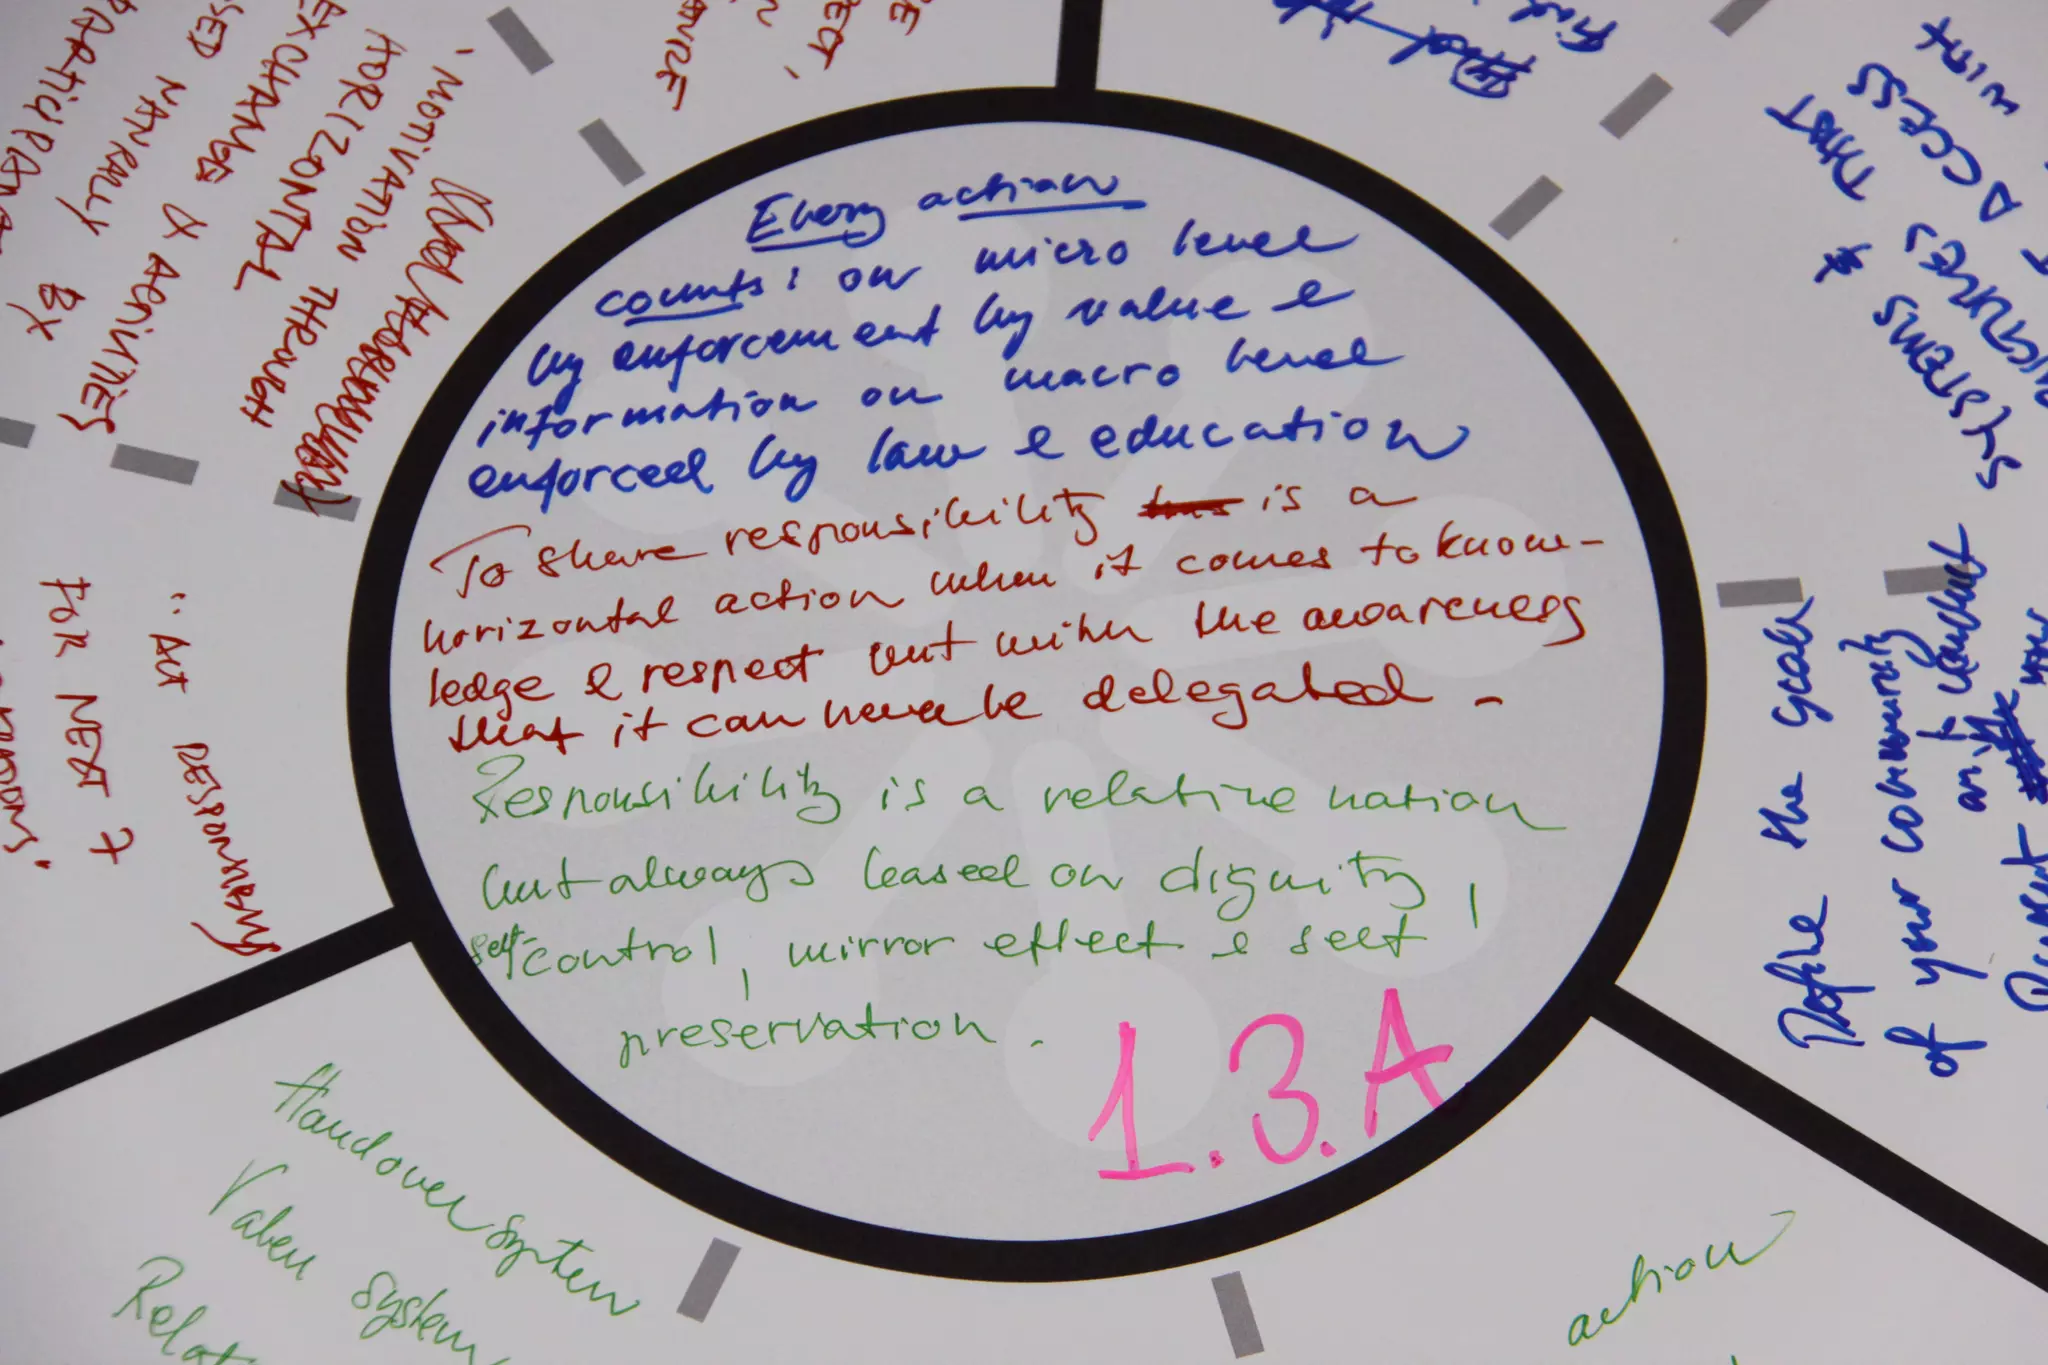 Every action
counts: on micro level
by enforcement by value &
information on macro level
enforced by law & education
To share responsibility is a
horizontal action when it comes to know-
ledge & respect but with the awareness
that it can never be delegated -
Responsibility is a relative notion
but always based on dignity,
self-control, mirror effect & self
preservation.
1.3.A
MOTIVATION THROUGH
HORIZONTAL
EXCHANGE
& ACTIVITIES
MANRALLY BY
ACCESS
THAT
SYSTEMS &
Define the goal
of your community
ART RESPONSIBILITY
FOR NEXT 7
Handover system
Valeu system
action